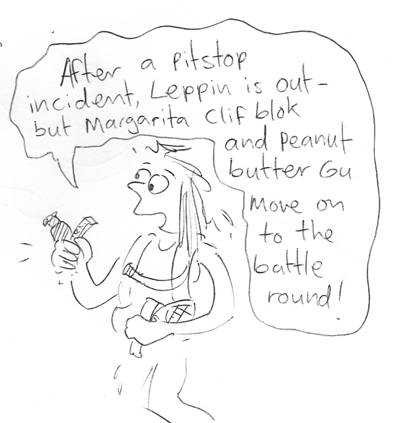 After a pitstop
incident, Leppin is out-
but Margarita Clif blok
and peanut
butter Gu
move on
to the
battle
round!